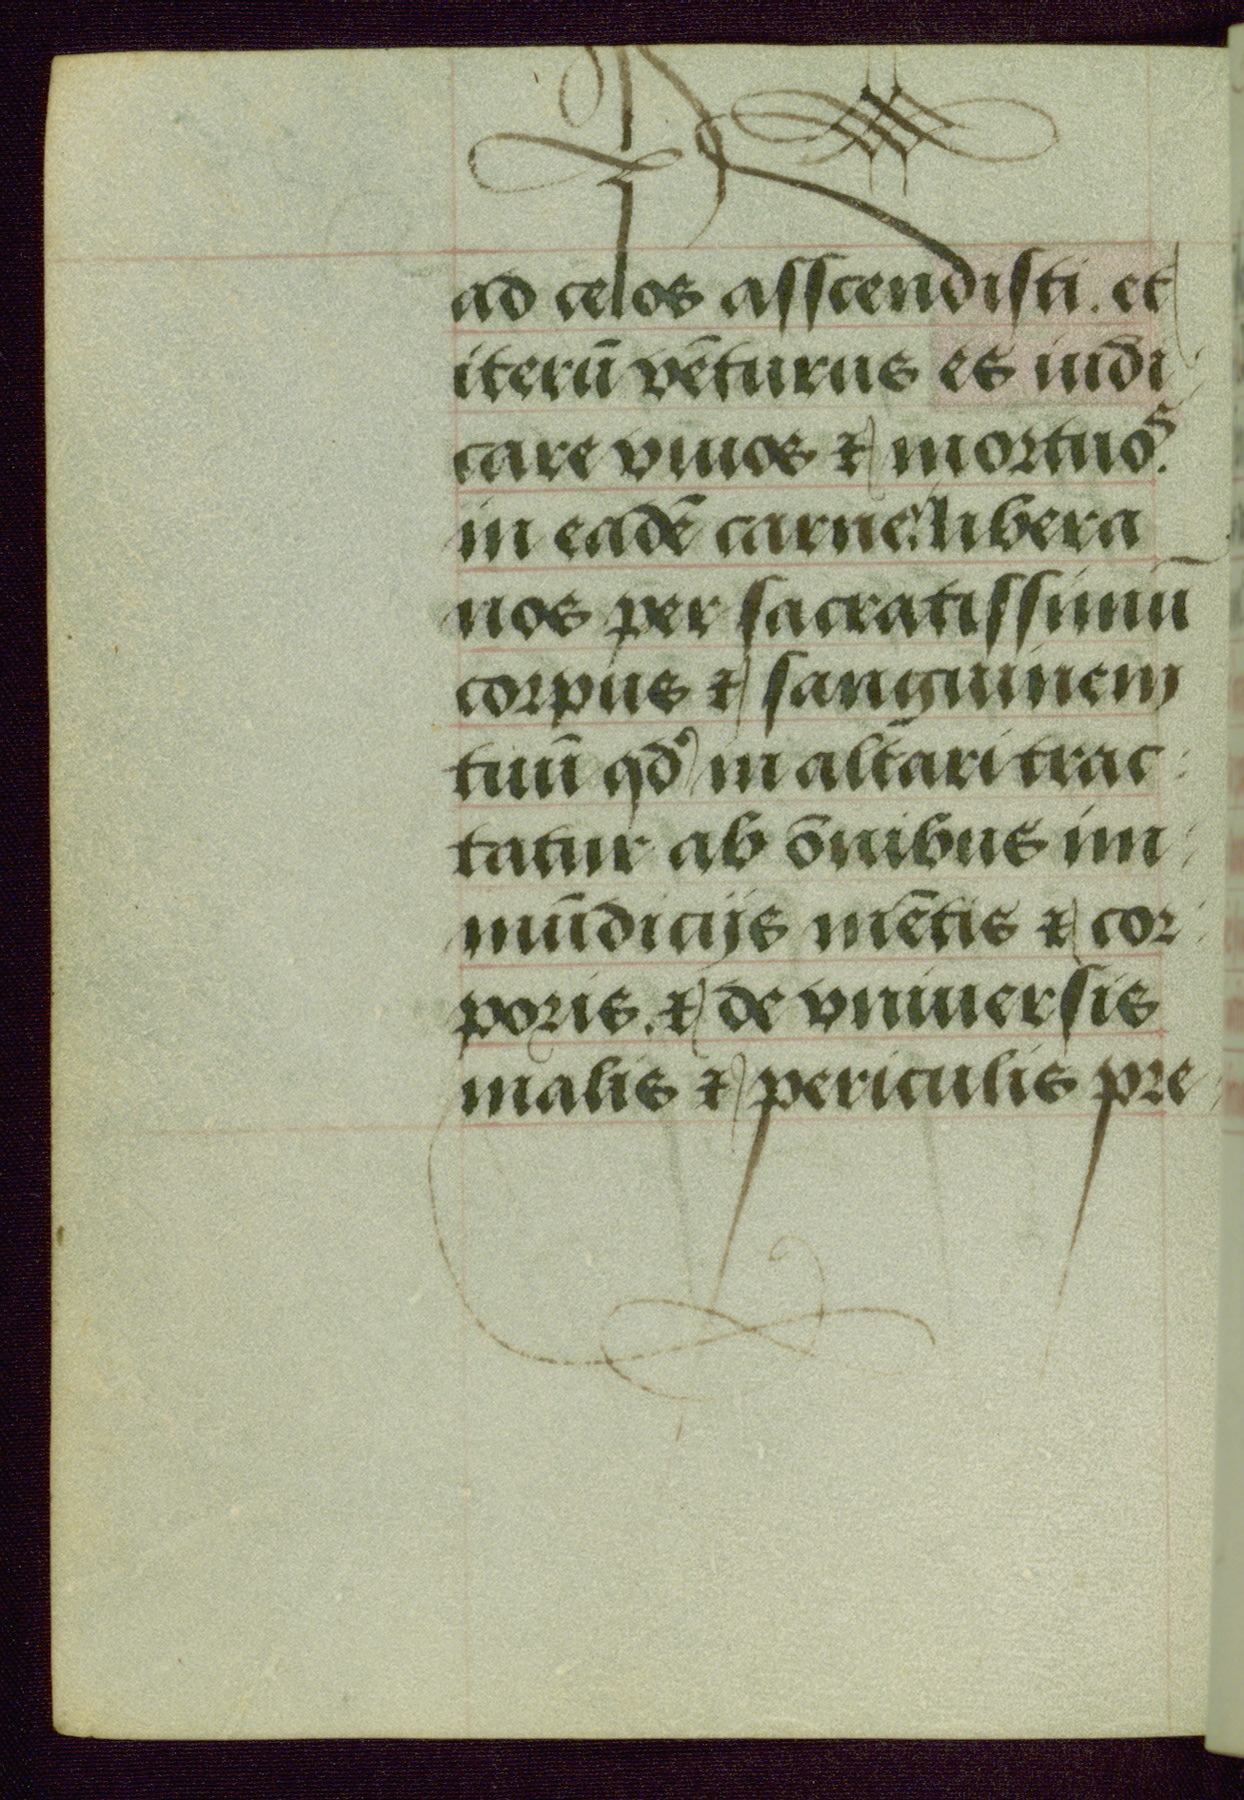 ad celos asscendisti. et
iterū vēturus es iudi
care viuos ⁊ mortuoˢ.
in eadē carne. libera
nos per sacratissimū
corpus ⁊ sanguinem
tuū qd̓ in altari trac
tatur ab ōnibus im
mūdicijs mētis ⁊ cor
poris. ⁊ de vniuersis
malis ⁊ periculis pre